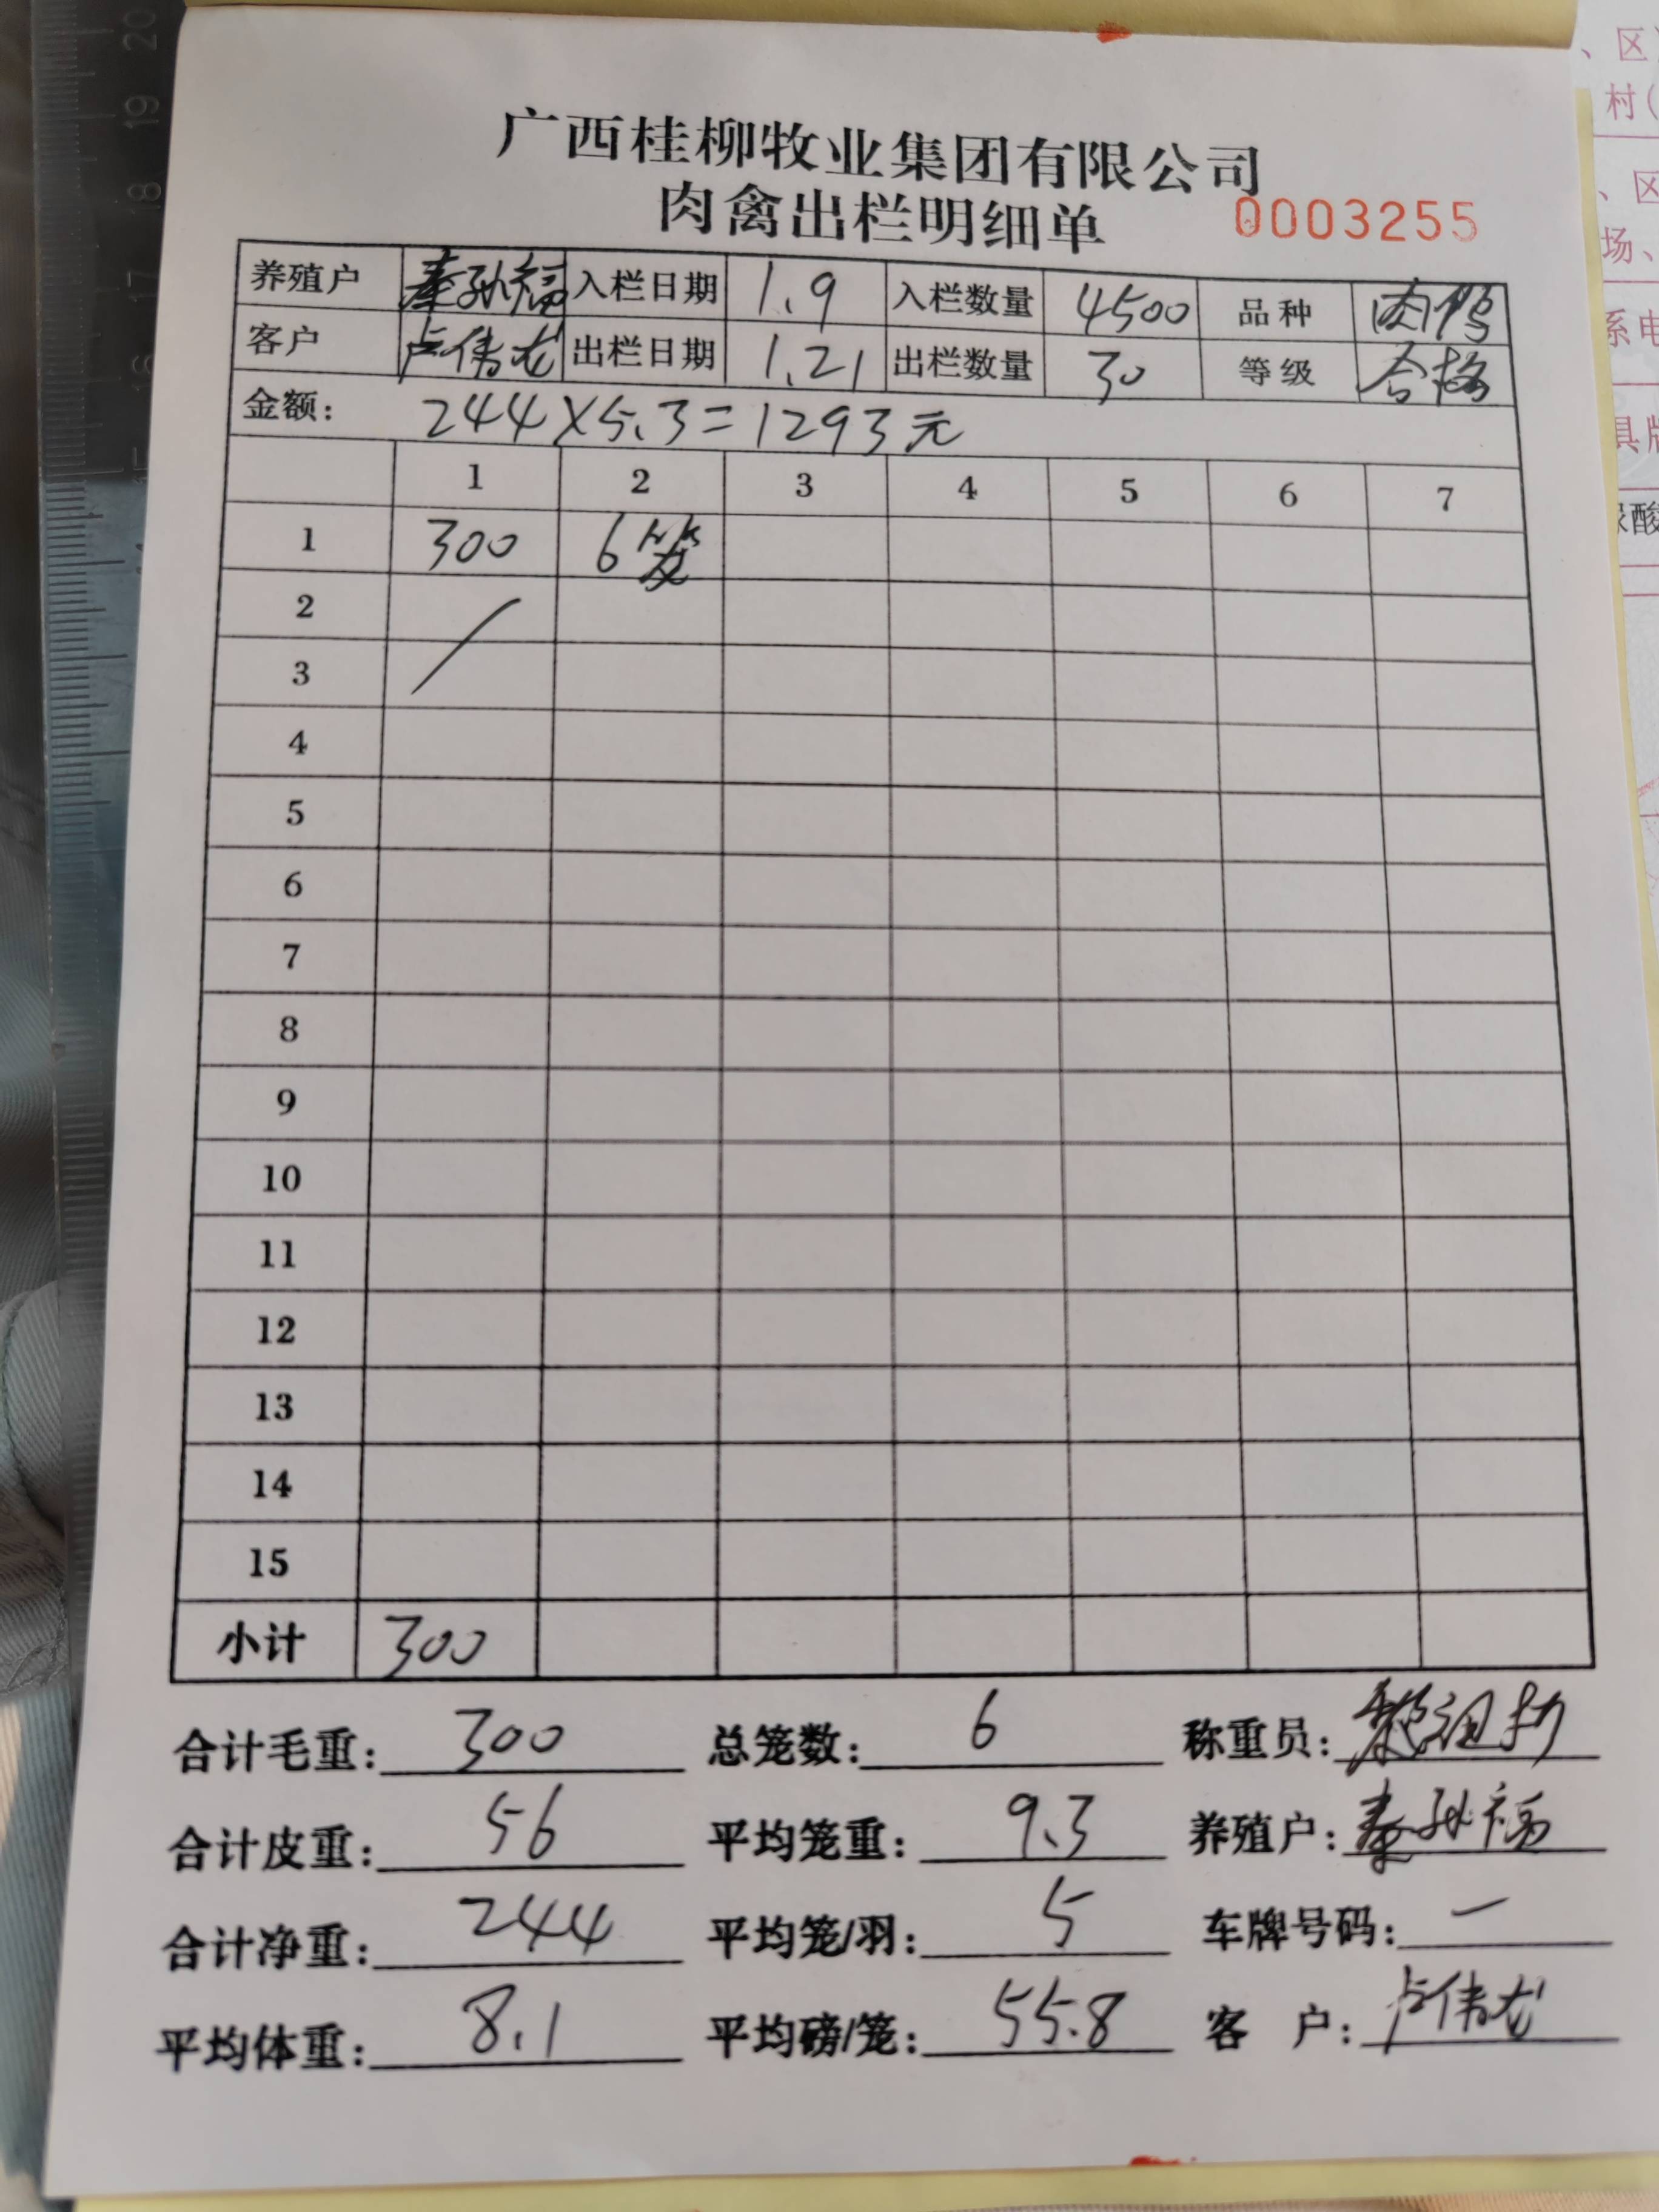 广西桂柳牧业集团有限公司
肉禽出栏明细单 0003255
养殖户 秦孙福 入栏日期 1.9 入栏数量 4500 品种 肉鸭
客户 卢伟龙 出栏日期 1.21 出栏数量 30 等级 合格
金额: 244×5.3=1293元
1 2 3 4 5 6 7
1 300 6笼
2
3
4
5
6
7
8
9
10
11
12
13
14
15
小计 300
合计毛重: 300 总笼数: 6 称重员:
合计皮重: 56 平均笼重: 9.3 养殖户: 秦孙福
合计净重: 244 平均笼/羽: 5 车牌号码: 一
平均体重: 8.1 平均磅/笼: 55.8 客 户: 卢伟龙
、区
村(
、区
场、
系电
具牌
尿酸
20
19
18
17
16
15